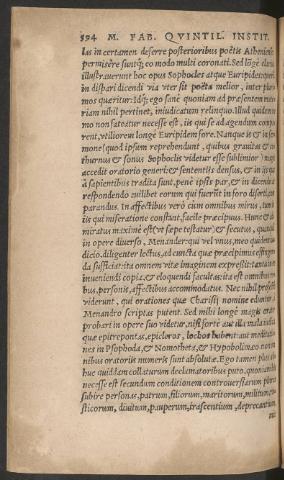 594 M. FAB. QVINTIL. INSTIT.
las in certamen deferre posterioribus poëtis Athenienses
permisere, suntq; eo modo multi coronati. Sed longè clarius
illustrauerunt hoc opus Sophocles atque Euripides: quorum
in dispari dicendi via vter sit poëta melior, inter plurimos
mos quæritur. Idq; ego sanè quoniam ad præsentem mate
riam nihil pertinet, iniudicatum relinquo. Illud quidem ne
mo non fateatur necesse est, iis qui se ad agendum compa
rent, vtiliorem longè Euripidem fore. Nanque is & in ser
mone (quod ipsum reprehendunt, quibus grauitas & co
thurnus & sonus Sophoclis videtur esse sublimior) magis
accedit oratorio generi: & sententiis densus, & in iis quæ
à sapientibus tradita sunt, penè ipsis par, & in dicendo ac
respondendo cuilibet eorum qui fuerunt in foro diserti, com
parandus. In affectibus verò cùm omnibus mirus, tum in
iis qui miseratione constant, facilè præcipuus. Hunc & ad
miratus maximè est (vt sæpe testatur) & secutus, quanquam
in opere diuerso, Menander: qui vel vnus, meo quidem iu
dicio, diligenter lectus, ad cuncta quæ præcipimus effingen
da sufficiat: ita omnem vitæ imaginem expressit: tanta in eo
inueniendi copia, & eloquendi facultas: ita est omnibus re
bus, personis, affectibus accommodatus. Nec nihil profecto
viderunt, qui orationes quæ Charisij nomine eduntur à
Menandro scriptas putent. Sed mihi longè magis orator
probari in opere suo videtur, nisi fortè aut illa mala iudicia
quæ epitrepontas, epicleros, locros habent: aut meditatio
nes in Psophoda, & Nomotheta, & Hypobolimæo non om
nibus oratoriis numeris sunt absolutæ. Ego tamen plus ad
huc quiddam collaturum declamatoribus puto, quoniam his
necesse est secundum conditionem controuersiarum plures
subire personas, patrum, filiorum, maritorum, militum, ru
sticorum, diuitum, pauperum, irascentium, deprecantium,